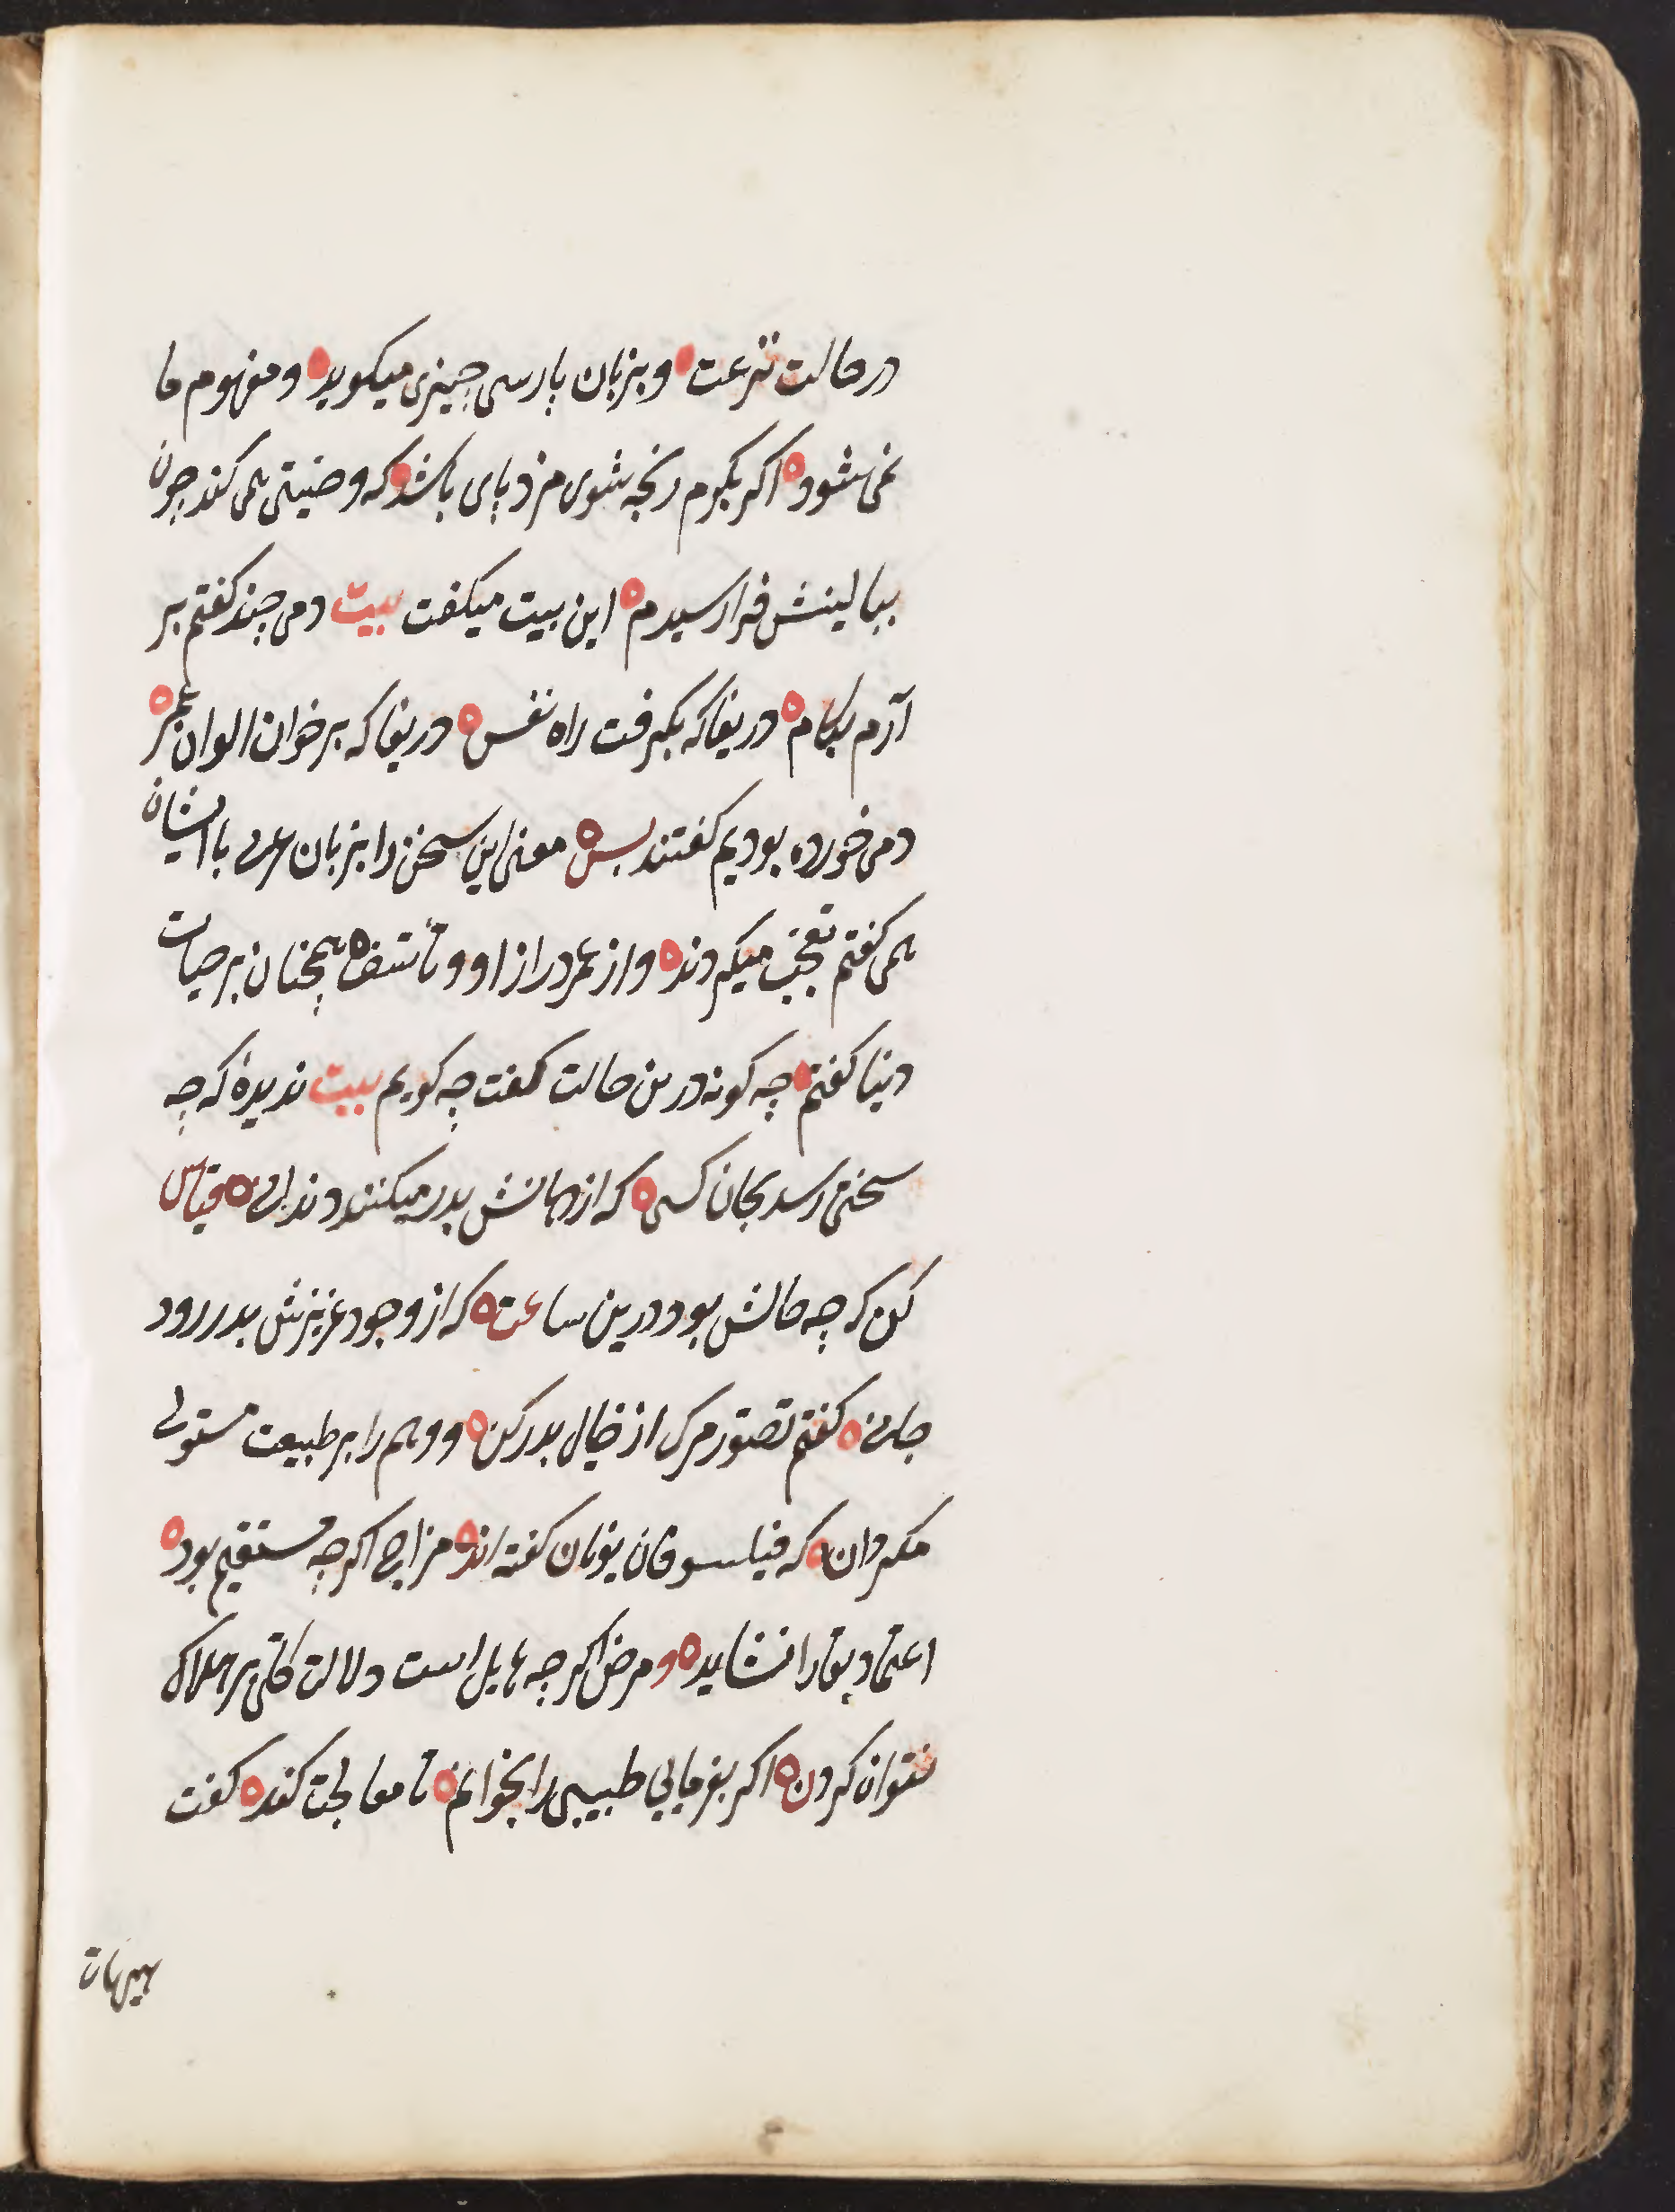 در حالت نزعت ه و بزبان پارسی چیزی میکوید ه و مفهوم ما
نمی شود ه اکر بکرم رنجه شوی مزد یابی باشد که وصیتی همی کند چون
ببالینش فرا رسیدم ه این بیت میکفت بیت دمی چند کفتم بر
آرم بکام ه دریغا که بکرفت راه نفس ه دریغا که بر خوان الوان عمر ه
دمی خورده بودیم کفتند بس ه معنی این سخن را بزبان عربی با ایشان
همی کفتم تعجب میکردند ه و از عمر دراز او و تأسف ه همچنان بر حیات
دنیا کفتم ه چه کونه درین حالت کفت چه کویم بیت ندیدهٔ که چه
سختی رسد بجان کسی ه که از دهانش بدر میکنند دندانی ه قیاس
کن که چه حالش بود درین ساعت ه که از وجود عزیزش بدر رود
جانی ه کفتم تصور مرک از خیال بدر کن ه و وهم را بر طبیعت مستولی
مکردان ه که فیلسوفان یونان کفته اند ه مزاج اکر چه مستقیم بود ه
اعتماد بقا را نشاید ه و مرض اکر چه هایل است دلالت کلی بر هلاک
نتوان کردن ه اکر بفرمایی طبیبی را بخوانم ه تا معالجت کند ه کفت
هیهات